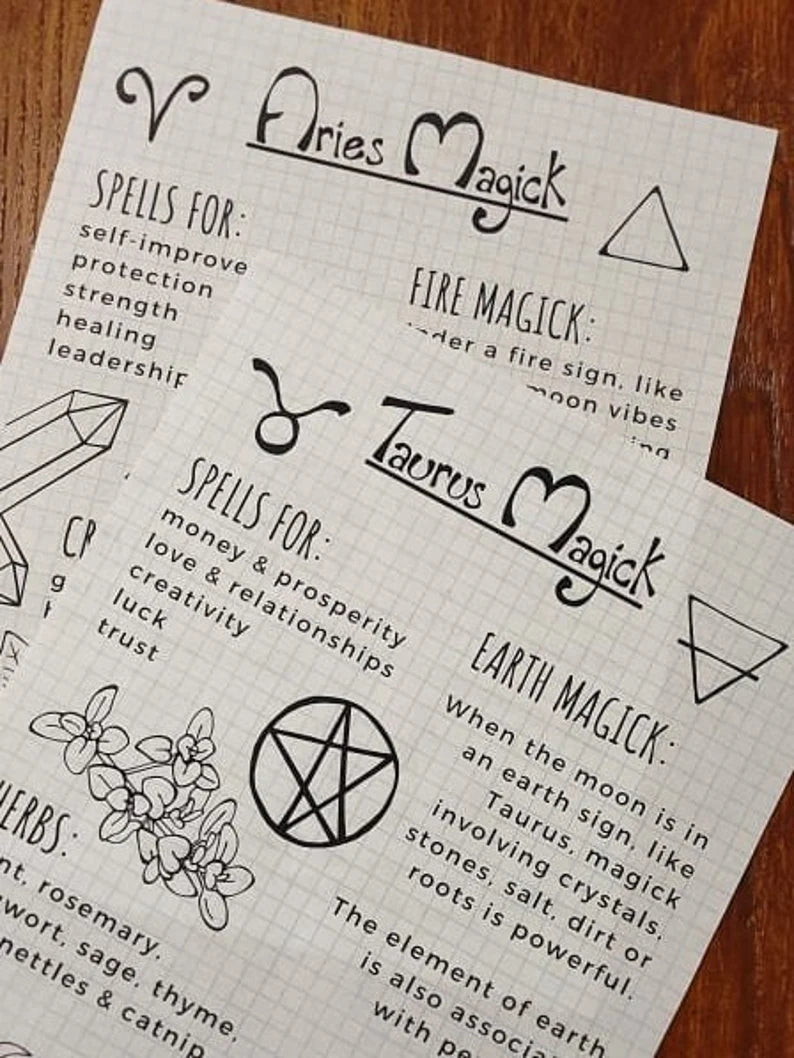 Aries Magick
SPELLS FOR:
self-improve
protection
strength
healing
leadership
FIRE MAGICK:
under a fire sign, like
moon vibes
ing
CR
g
Taurus Magick
SPELLS FOR:
money & prosperity
love & relationships
creativity
luck
trust
EARTH MAGICK:
When the moon is in
an earth sign, like
Taurus, magick
involving crystals,
stones, salt, dirt or
roots is powerful.
The element of earth
is also associa
with pe
HERBS:
nt, rosemary,
wort, sage, thyme,
nettles & catnip